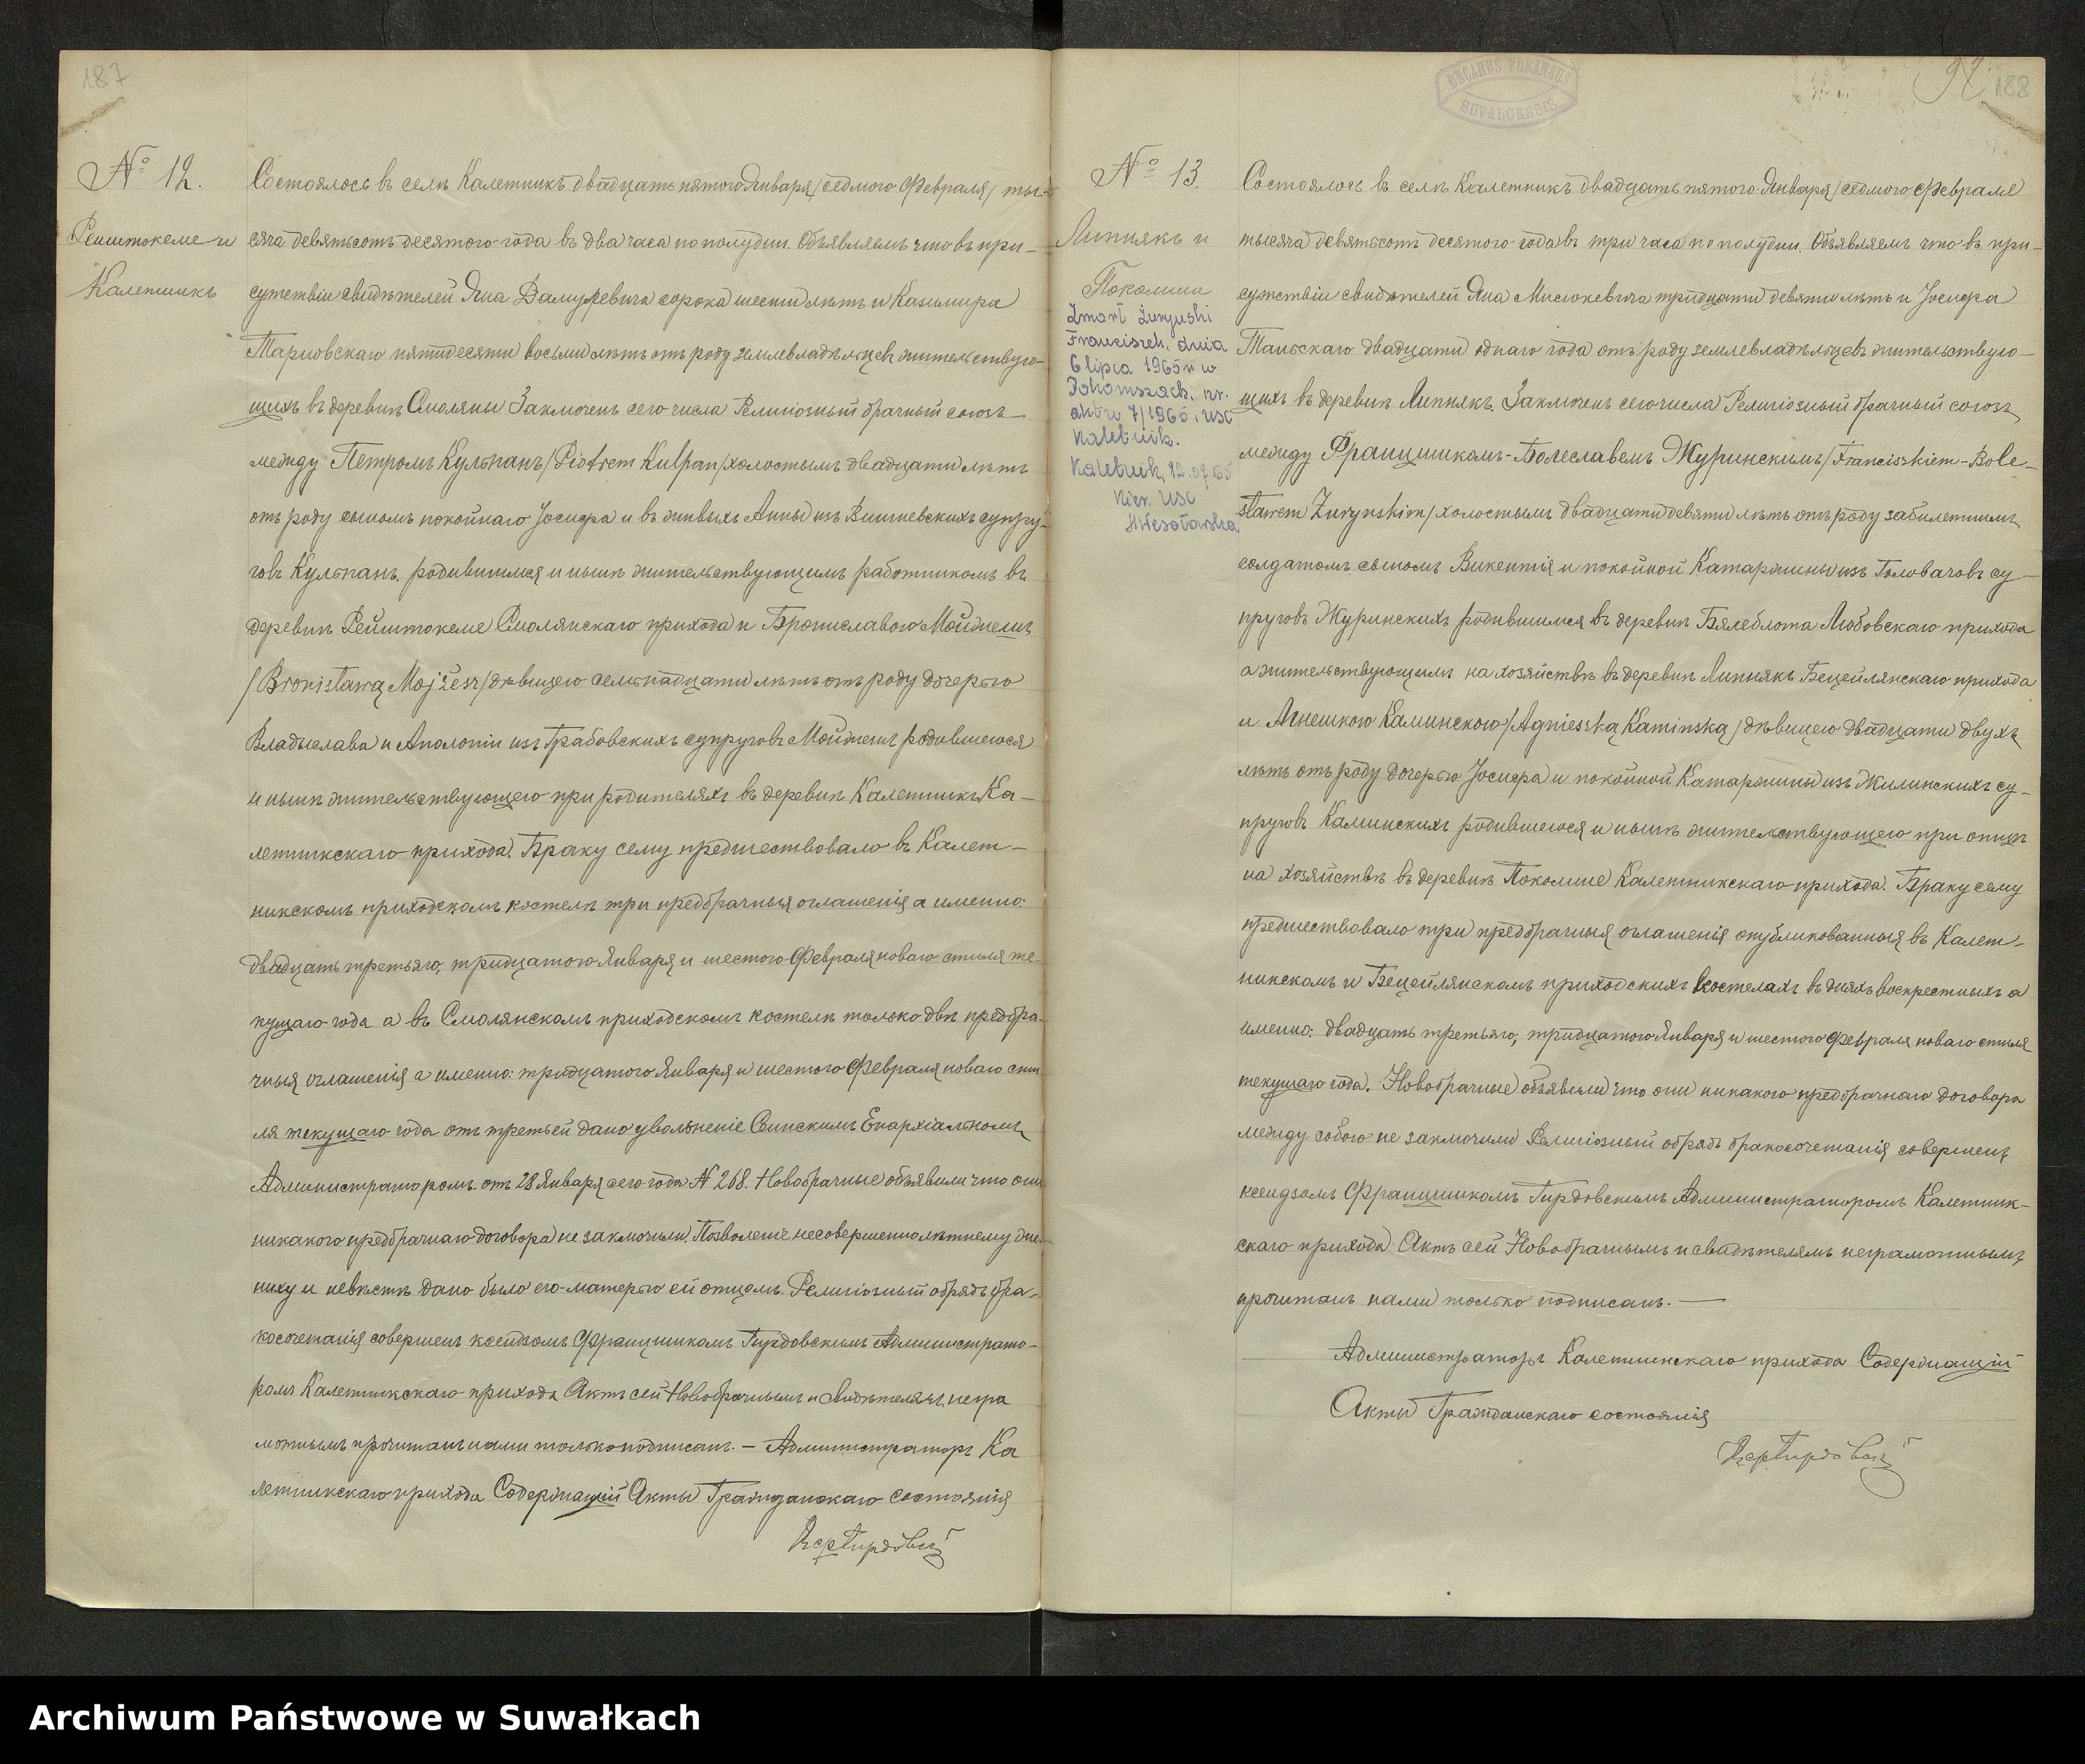 187
№ 12.
Рейштокеме и
Калетникъ
Состоялось въ селѣ Калетникъ двадцать пятого Января /седмого Февраля/ ты-
сяча девятьсотъ десятого года въ два часа по полудни. Объявляемъ что въ при-
сутствіи свидѣтелей Яна сорока шести лѣтъ и Казимира
Тарновскаго пятидесяти восьми лѣтъ отъ роду землевладѣльцевъ жительствую-
щихъ въ деревнѣ Смоляны Заключенъ сего числа Религіозный брачный союзъ
между Петромъ Кульпанъ /Piotrem Kulpan/ холостымъ двадцати лѣтъ
отъ роду сыномъ покойнаго Іосифа и въ живыхъ Анны изъ Вишневскихъ супру-
говъ Кульпанъ родившимся и нынѣ жительствующимъ работникомъ въ
деревнѣ Рейштокеме Смолянскаго прихода и Брониславою Мойжешъ
/Bronisławą Mojżesz/ дѣвицею семнадцати лѣтъ отъ роду дочерью
Владыслава и Аполоніи изъ Грабовскихъ супруговъ Мойжешъ родившеюся
и нынѣ жительствующею при родителяхъ въ деревнѣ Калетникъ Ка-
летникскаго прихода. Браку сему предшествовало въ Калет-
никскомъ приходскомъ костелѣ три предбрачныя оглашенія а именно:
двадцать третьяго, тридцатого Января и шестого Февраля новаго стиля те-
кущаго года а въ Смолянскомъ приходскомъ костелѣ только двѣ предбра-
чныя оглашенія а именно: тридцатого Января и шестого Февраля новаго сти
ля текущаго года отъ третьей дано увольненіе Сейнскимъ Епархіальнымъ
Администраторомъ отъ 28 Января сего года № 268. Новобрачные объявили что они
никакого предбрачнаго договора не заключили. Позволеніе несовершеннолѣтнему же-
ниху и невѣстѣ дано было его матерью ей отцомъ. Религіозный обрядъ бра-
косочетанія совершенъ ксендзомъ Францишкомъ Гирдовскимъ Администрато-
ромъ Калетникскаго прихода Актъ сей Новобрачнымъ и Свидѣтелямъ негра
мотнымъ прочитанъ нами только подписанъ. — Администраторъ Ка
летникскаго прихода Содержащій Акты Гражданскаго состоянія
188
DECANUS FORANEUS
SUVALCENSIS
№ 13.
Липнякъ и
Покомше
Zmarł Żuryński
Franciszek, dnia
6 lipca 1965 r. w
Pokomszach, nr.
aktu 7/1965. USC
Kaletnik.
Kaletnik, 12.07.65
Kier. USC
Состоялось въ селѣ Калетникъ двадцать пятого Января /седмого Февраля
тысяча девятьсотъ десятого года въ три часа по полудни. Объявляемъ что въ при-
сутствіи свидѣтелей Яна Мисюкевича тридцати девяти лѣтъ и Іосифа
двадцати одного года отъ роду землевладѣльцевъ жительствую-
щихъ въ деревнѣ Липнякъ. Заключенъ сего числа Религіозный брачный союзъ
между Францишкомъ-Болеславемъ Журинскимъ /Franciszkiem-Bole-
sławem Żuryńskim/ холостымъ двадцати девяти лѣтъ отъ роду забилетнымъ
солдатомъ сыномъ Викентія и покойной Катаржины изъ Головачовъ су-
пруговъ Журинскихъ родившимся въ деревнѣ Бялеблота Любовскаго прихода
а жительствующимъ на хозяйствѣ въ деревнѣ Липнякъ Бецейлянскаго прихода
и Агнешкою Каминскою /Agnieszką Kamińską/ дѣвицею двадцати двухъ
лѣтъ отъ роду дочерью Іосифа и покойной Катаржины изъ Жилинскихъ су-
пруговъ Каминскихъ родившеюся и нынѣ жительствующею при отцѣ
на хозяйствѣ въ деревнѣ Покомше Калетникскаго прихода. Браку сему
предшествовало три предбрачныя оглашенія опубликованныя въ Калет-
никскомъ и Бецейлянскомъ приходскихъ костелахъ въ дняхъ воскрестныхъ а
именно: двадцать третьяго, тридцатого Января и шестого Февраля новаго стиля
текущаго года. Новобрачные объявили что они никакого предбрачнаго договора
между собою не заключили Религіозный обрядъ бракосочетанія совершенъ
ксендзомъ Францишкомъ Гирдовскимъ Администраторомъ Калетник-
скаго прихода Актъ сей Новобрачнымъ и свидѣтелямъ неграмотнымъ
прочитанъ нами только подписанъ. —
Администраторъ Калетникскаго прихода Содержащій
Акты Гражданскаго состоянія
Archiwum Państwowe w Suwałkach